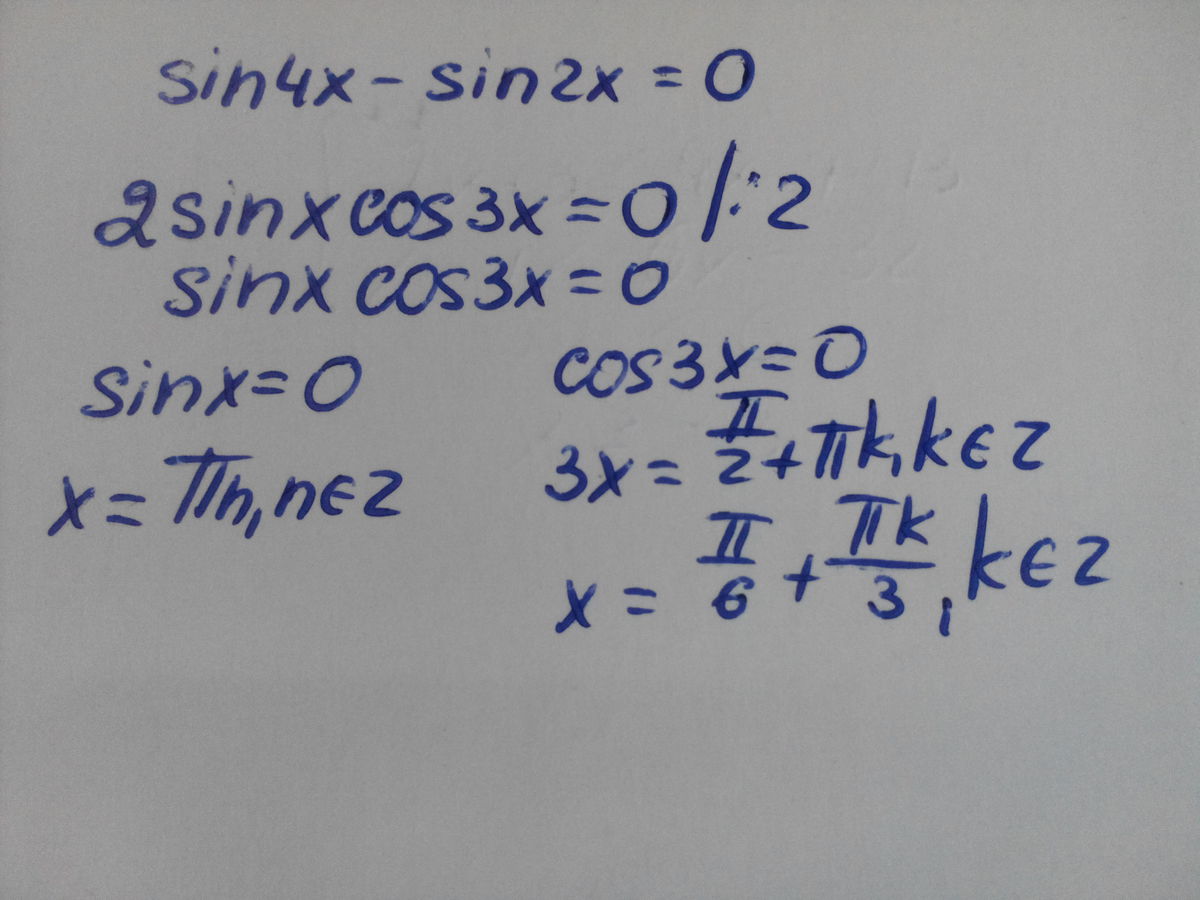 sin4x - sin2x = 0
2sinxcos3x = 0 /:2
sinx cos3x = 0
sinx = 0
x = πn, n∈z
cos3x = 0
3x = π/2 + πk, k∈z
x = π/6 + πk/3, k∈z